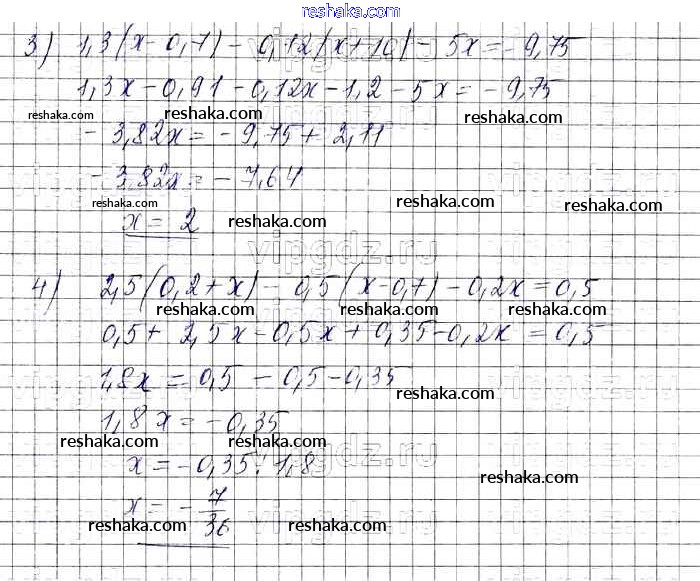 reshaka.ru
3) 1,3(x-0,7) - 0,12(x+10) - 5x = -9,75
1,3x - 0,91 - 0,12x - 1,2 - 5x = -9,75
reshaka.ru reshaka.ru reshaka.ru
- 3,82x = -9,75 + 2,11
reshaka.ru
- 3,82x = -7,64
reshaka.ru reshaka.ru
x = 2 reshaka.ru
vipgdz.ru
4) 2,5(0,2+x) - 0,5(x-0,7) - 0,2x = 0,5
0,5 + 2,5x - 0,5x + 0,35 - 0,2x = 0,5
1,8x = 0,5 - 0,5 - 0,35
reshaka.ru
1,8x = -0,35
reshaka.ru reshaka.ru
x = -0,35 : 1,8
reshaka.ru
x = - 7/36
reshaka.ru reshaka.ru reshaka.ru